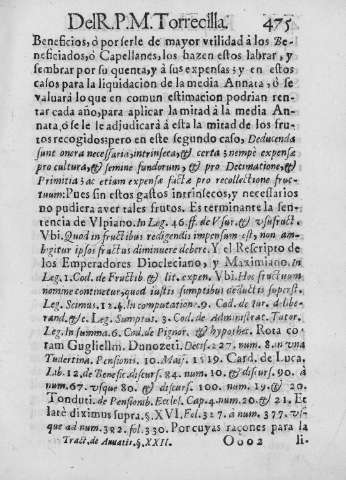 Del R. P. M. Torrecilla. 475
Beneficios, ò por serle de mayor vtilidad à los Be-
neficiados, ò Capellanes, los hazen estos labrar, y
sembrar por su quenta, y à sus expensas; y en estos
casos para la liquidacion de la media Annata, ò se
valuarà lo que en comun estimacion podrian ren-
tar cada año, para aplicar la mitad à la media An-
nata, ò se le adjudicarà à esta la mitad de los fru-
tos recogidos: pero en este segundo caso, Deducenda
sunt onera necessaria, intrinseca, & certa; nempè expensæ
pro cultura, & semine fundorum, & pro Decimatione, &
Primitia; ac etiam expensæ factæ pro recollectione fruc-
tuum: Pues sin estos gastos intrinsecos, y necessarios
no pudiera aver tales frutos. Es terminante la sen-
tencia de Vlpiano. In Leg. 46. ff. de Vsur. & vsufruct.
Vbi. Quod in fructibus redigendis impensum est, non am-
bigitur ipsos fructus diminuere debere. Y el Rescripto de
los Emperadores Diocleciano, y Maximiano. In
Leg. 1. Cod. de Fructib. & lit. expen. Vbi. Hos fructuum
nomine contineтur, quod iustis sumptibus deductis superest.
Leg. Scimus. 22. 4. In computatione. 9. Cod. de Iur. delibe-
rand. & c. Leg. Sumptus. 3. Cod. de Administrat. Tutor.
Leg. In summa. 6. Cod. de Pignor. & hypothec. Rota co-
ram Guglielm. Dunozeti. Decis. 227. num. 8. In vna
Tudertina Pensionis. 10. Maij. 1519. Card. de Luca.
Lib. 12. de Benefic. Discurs. 84. num. 10. & discurs. 90. à
num. 67. vsque 80. & discurs. 100. num. 19. & 20.
Tonduti. de Pensionib. Eccles. Cap. 4. num. 20. & 21. Et
latè diximus supra. §. XVI. Fol. 327. à num. 377. vs-
que ad num. 382. fol. 330. Por cuyas raçones para la
Tract. de Annatis. §. XXII. Oooo 2 li-